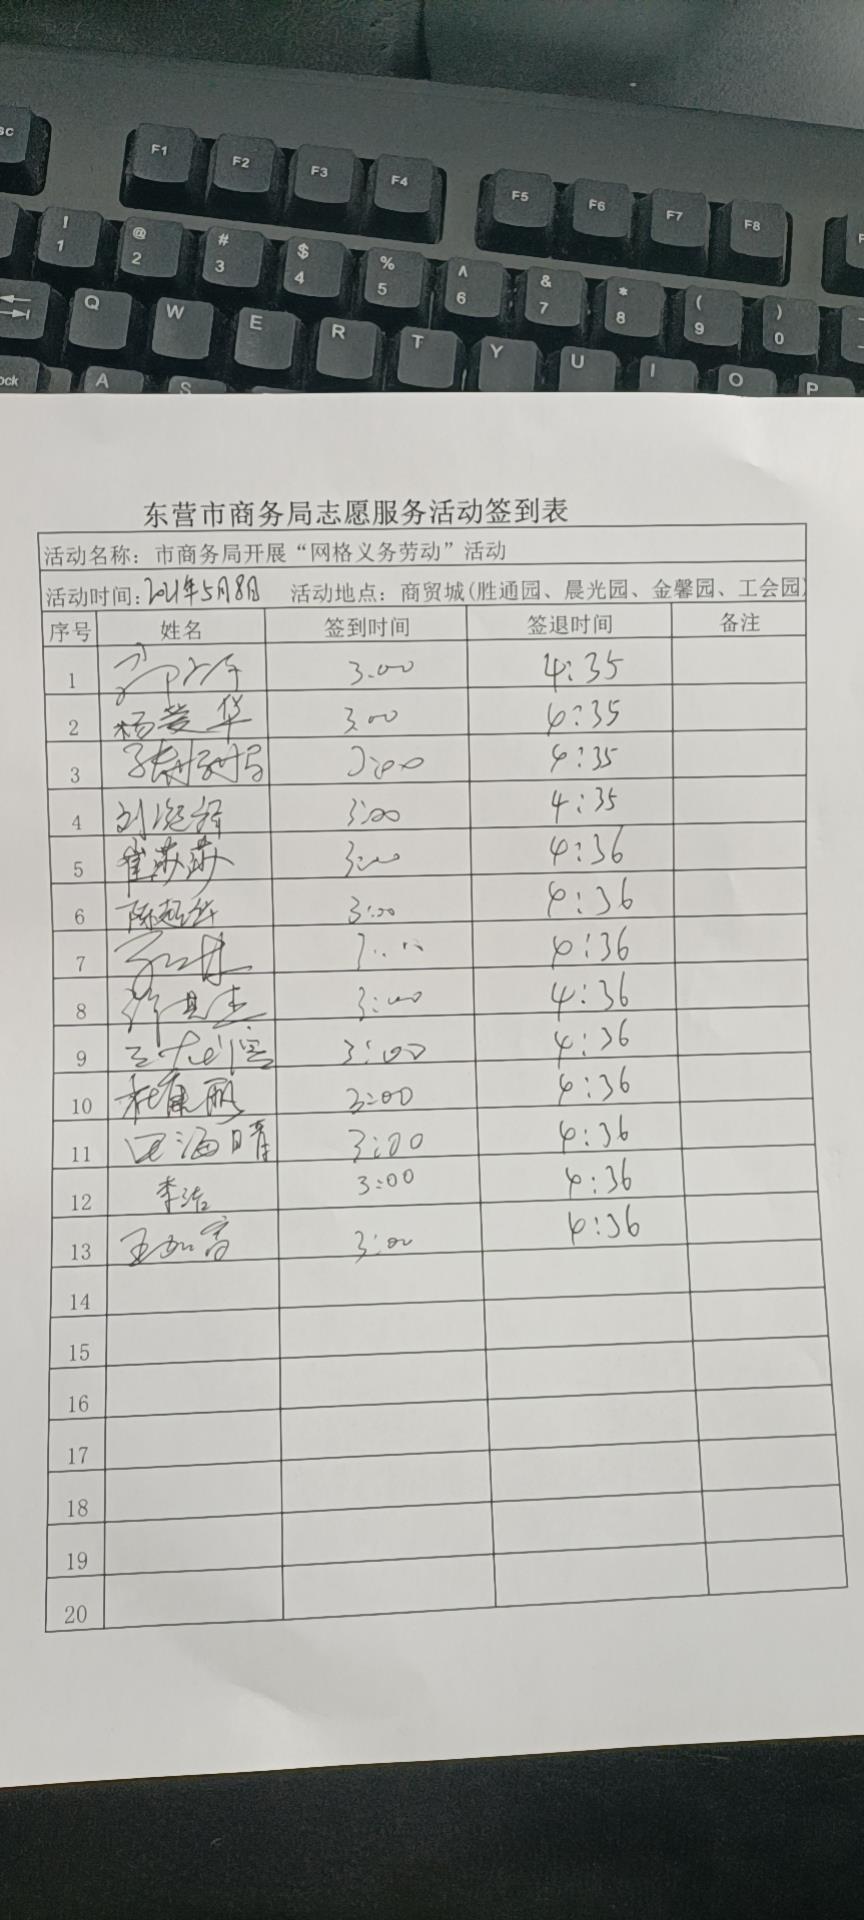 sc F1 F2 F3 F4 F5 F6 F7 F8
! 1 @ 2 # 3 $ 4 % 5 ^ 6 & 7 * 8 ( 9 ) 0
Q W E R T Y U I O P
ock A S
东营市商务局志愿服务活动签到表
活动名称：市商务局开展“网格义务劳动”活动
活动时间：2021年5月8日 活动地点：商贸城(胜通园、晨光园、金馨园、工会园)
序号 姓名 签到时间 签退时间 备注
1 3:00 4:35
2 杨爱华 3:00 4:35
3 3:00 4:35
4 3:00 4:35
5 崔莎莎 3:00 4:36
6 3:00 4:36
7 4:36
8 3:00 4:36
9 3:00 4:36
10 杜康鹏 3:00 4:36
11 田海晴 3:00 4:36
12 李洁 3:00 4:36
13 3:00 4:36
14
15
16
17
18
19
20